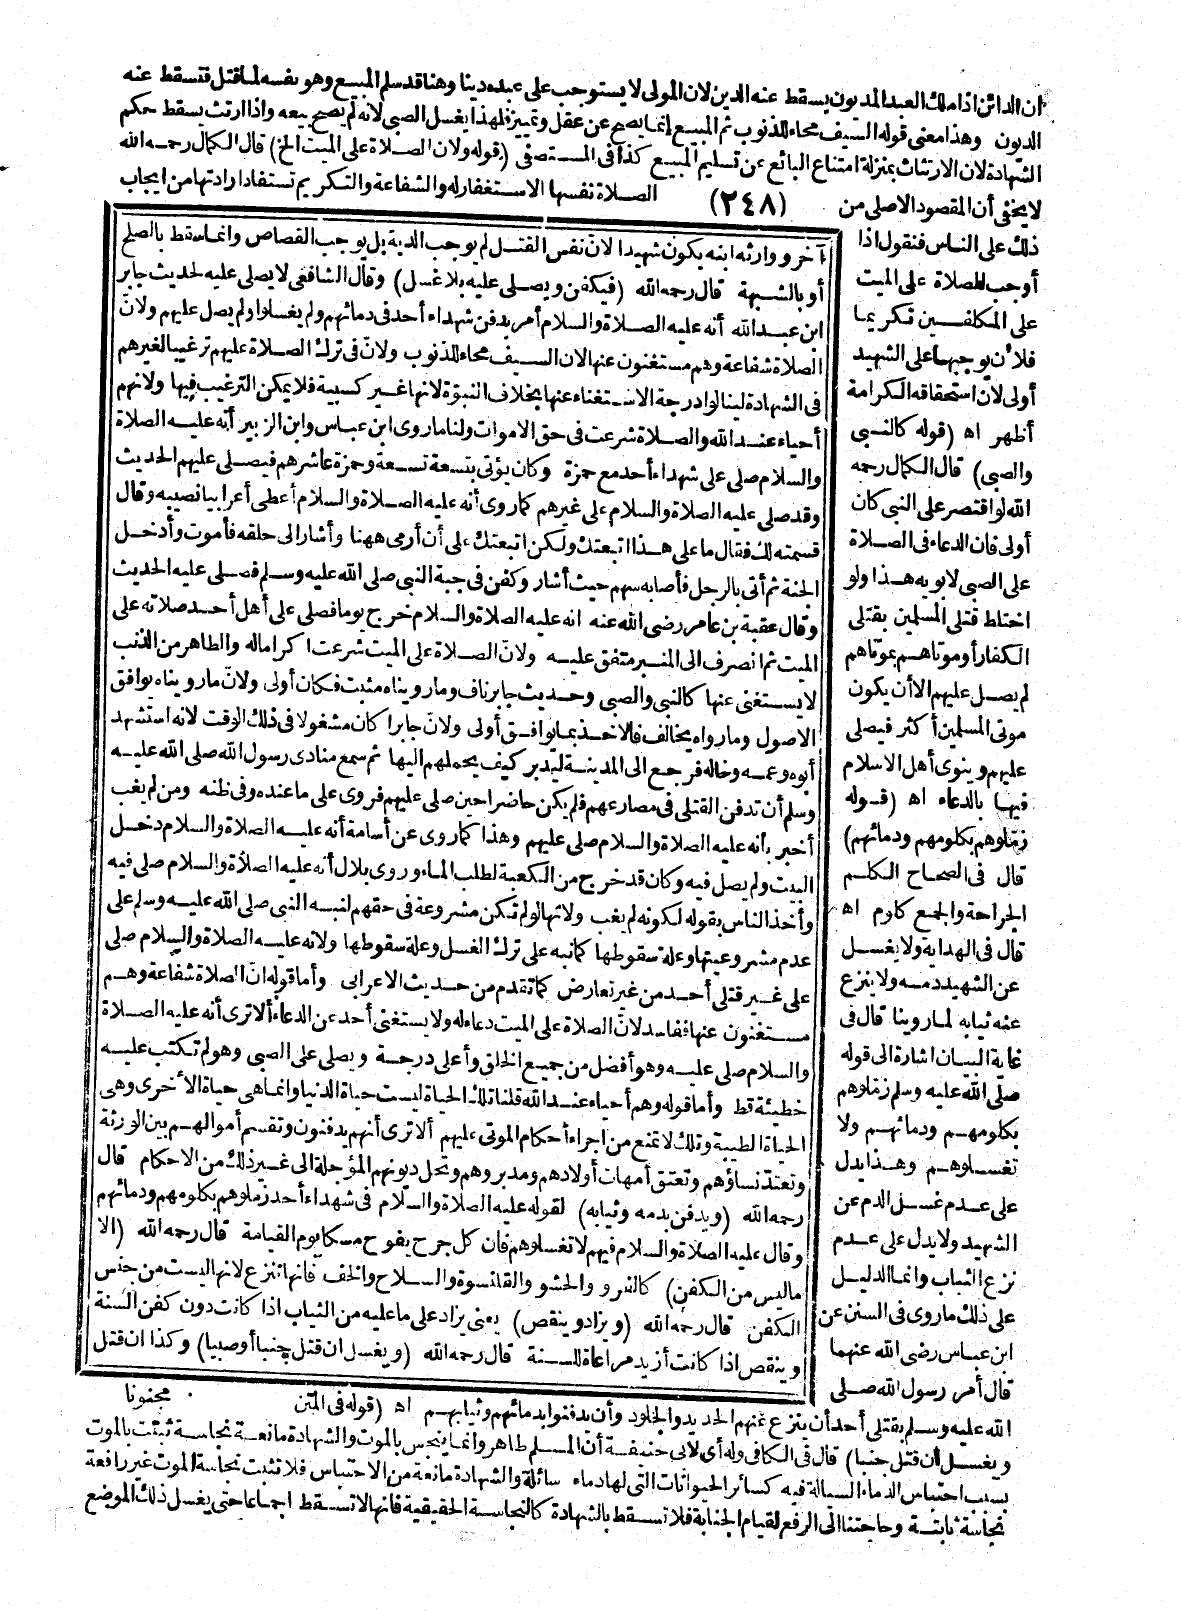 ان الدائن اذا ملك العبد المديون يسقط عنه الدين لان المولى لا يستوجب على عبده دينا وهنا قد سلم المبيع وهو نفسه لما قتل فتسقط عنه
الديون وهذا معنى قوله السيف محاء للذنوب ثم المبيع إنما يصح عن عقل وتمييز فلهذا يغسل الصبى لانه لم يصح بيعه واذا ارتث يسقط حكم
الشهادة لان الارتثاث بمنزلة امتناع البائع عن تسليم المبيع كذا فى المستصفى (قوله ولان الصلاة على الميت الخ) قال الكمال رحمه الله
لا يخفى أن المقصود الاصلى من (٢٤٨) الصلاة نفسها الاستغفار له والشفاعة والتكريم تستفاد ارادتها من ايجاب
ذلك على الناس فنقول اذا
أوجب الصلاة على الميت
على المكلفين تكريما
فلأن يوجبها على الشهيد
أولى لان استحقاقه الكرامة
أظهر اه (قوله كالنبى
والصبى) قال الكمال رحمه
الله لو اقتصر على النبى كان
أولى فان الدعاء فى الصلاة
على الصبى لابويه هذا ولو
اختلط قتلى المسلمين بقتلى
الكفار أو موتاهم بموتاهم
لم يصل عليهم الا أن يكون
موتى المسلمين أكثر فيصلى
عليهم وينوى أهل الاسلام
فيها بالدعاء اه (قوله
زملوهم بكلومهم ودمائهم)
قال فى الصحاح الكلم
الجراحة والجمع كلوم اه
قال فى الهداية ولا يغسل
عن الشهيد دمه ولا ينزع
عنه ثيابه لما روينا قال فى
غاية البيان اشارة الى قوله
صلى الله عليه وسلم زملوهم
بكلومهم ودمائهم ولا
تغسلوهم وهذا يدل
على عدم غسل الدم عن
الشهيد ولا يدل على عدم
نزع الثياب وانما الدليل
على ذلك ما روى فى السنن عن
ابن عباس رضى الله عنهما
قال أمر رسول الله صلى
آخر ووارثه ابنه يكون شهيدا لان نفس القتل لم يوجب الدية بل يوجب القصاص وانما سقط بالصلح
أو بالشبهة قال رحمه الله (فيكفن ويصلى عليه بلا غسل) وقال الشافعى لا يصلى عليه لحديث جابر
ابن عبد الله أنه عليه الصلاة والسلام أمر بدفن شهداء أحد فى دمائهم ولم يغسلوا ولم يصل عليهم ولان
الصلاة شفاعة وهم مستغنون عنها لان السيف محاء للذنوب ولان فى ترك الصلاة عليهم ترغيبا لغيرهم
فى الشهادة لينالوا درجة الاستغناء عنها بخلاف النبوة لانها غير كسبية فلا يمكن الترغيب فيها ولانهم
أحياء عند الله والصلاة شرعت فى حق الاموات ولنا ما روى ابن عباس وابن الزبير أنه عليه الصلاة
والسلام صلى على شهداء أحد مع حمزة وكان يؤتى بتسعة تسعة وحمزة عاشرهم فيصلى عليهم الحديث
وقد صلى عليه الصلاة والسلام على غيرهم كما روى أنه عليه الصلاة والسلام أعطى أعرابيا نصيبه وقال
قسمته لك فقال ما على هذا اتبعتك ولكن اتبعتك على أن أرمى ههنا وأشار الى حلقه فأموت وأدخل
الجنة ثم أتى بالرجل فأصابه سهم حيث أشار وكفن فى جبة النبى صلى الله عليه وسلم فصلى عليه الحديث
وقال عقبة بن عامر رضى الله عنه انه عليه الصلاة والسلام خرج يوما فصلى على أهل أحد صلاته على
الميت ثم انصرف الى المنبر متفق عليه ولان الصلاة على الميت شرعت اكراما له والطاهر من الذنب
لا يستغنى عنها كالنبى والصبى وحديث جابر ناف وما رويناه مثبت فكان أولى ولان ما رويناه يوافق
الاصول وما رواه يخالف فالاخذ بما يوافق أولى ولان جابرا كان مشغولا فى ذلك الوقت لانه استشهد
أبوه وعمه وخاله فرجع الى المدينة ليدبر كيف يحملهم اليها ثم سمع منادى رسول الله صلى الله عليه
وسلم أن تدفن القتلى فى مصارعهم فلم يكن حاضرا حين صلى عليهم فروى على ما عنده وفى ظنه ومن لم يغب
أخبر بأنه عليه الصلاة والسلام صلى عليهم وهذا كما روى عن أسامة أنه عليه الصلاة والسلام دخل
البيت ولم يصل فيه وكان قد خرج من الكعبة لطلب الماء وروى بلال أنه عليه الصلاة والسلام صلى فيه
وأخذ الناس بقوله لكونه لم يغب ولانها لو لم تكن مشروعة فى حقهم لنبه النبى صلى الله عليه وسلم على
عدم مشروعيتها وعلة سقوطها كما نبه على ترك الغسل وعلة سقوطها ولانه عليه الصلاة والسلام صلى
على غير قتلى أحد من غير تعارض كما تقدم من حديث الاعرابى وأما قوله ان الصلاة شفاعة وهم
مستغنون عنها ففاسد لان الصلاة على الميت دعاء له ولا يستغنى أحد عن الدعاء ألا ترى أنه عليه الصلاة
والسلام صلى عليه وهو أفضل من جميع الخلق وأعلى درجة ويصلى على الصبى وهو لم تكتب عليه
خطيئة قط وأما قوله وهم أحياء عند الله قلنا تلك الحياة ليست حياة الدنيا وانما هى حياة الأخرى وهى
الحياة الطيبة وتلك لا تمنع من اجراء أحكام الموتى عليهم ألا ترى أنهم يدفنون وتقسم أموالهم بين الورثة
وتعتد نساؤهم وتعتق أمهات أولادهم ومدبروهم وتحل ديونهم المؤجلة الى غير ذلك من الاحكام قال
رحمه الله (ويدفن بدمه وثيابه) لقوله عليه الصلاة والسلام فى شهداء أحد زملوهم بكلومهم ودمائهم
وقال عليه الصلاة والسلام فيهم لا تغسلوهم فان كل جرح يفوح مسكا يوم القيامة قال رحمه الله (الا
ما ليس من الكفن) كالفرو والحشو والقلنسوة والسلاح والخف فانها تنزع لانها ليست من جنس
الكفن قال رحمه الله (ويزاد وينقص) يعنى يزاد على ما عليه من الثياب اذا كانت دون كفن السنة
وينقص اذا كانت أزيد مراعاة للسنة قال رحمه الله (ويغسل ان قتل جنبا أو صبيا) وكذا ان قتل
مجنونا
الله عليه وسلم بقتلى أحد أن ينزع عنهم الحديد والجلود وأن يدفنوا بدمائهم وثيابهم اه (قوله فى المتن
ويغسل ان قتل جنبا) قال فى الكافى وله أى لابى حنيفة أن المسلم طاهر وانما ينجس بالموت والشهادة مانعة نجاسة تثبت بالموت
بسبب احتباس الدماء السيالة فيه كسائر الحيوانات التى لها دماء سائلة والشهادة مانعة من الاحتباس فلا تثبت نجاسة الموت غير رافعة
نجاسة ثابتة وحاجتنا الى الرفع لقيام الجنابة فلا تسقط بالشهادة كالنجاسة الحقيقية فانها لا تسقط اجماعا حتى يغسل ذلك الموضع